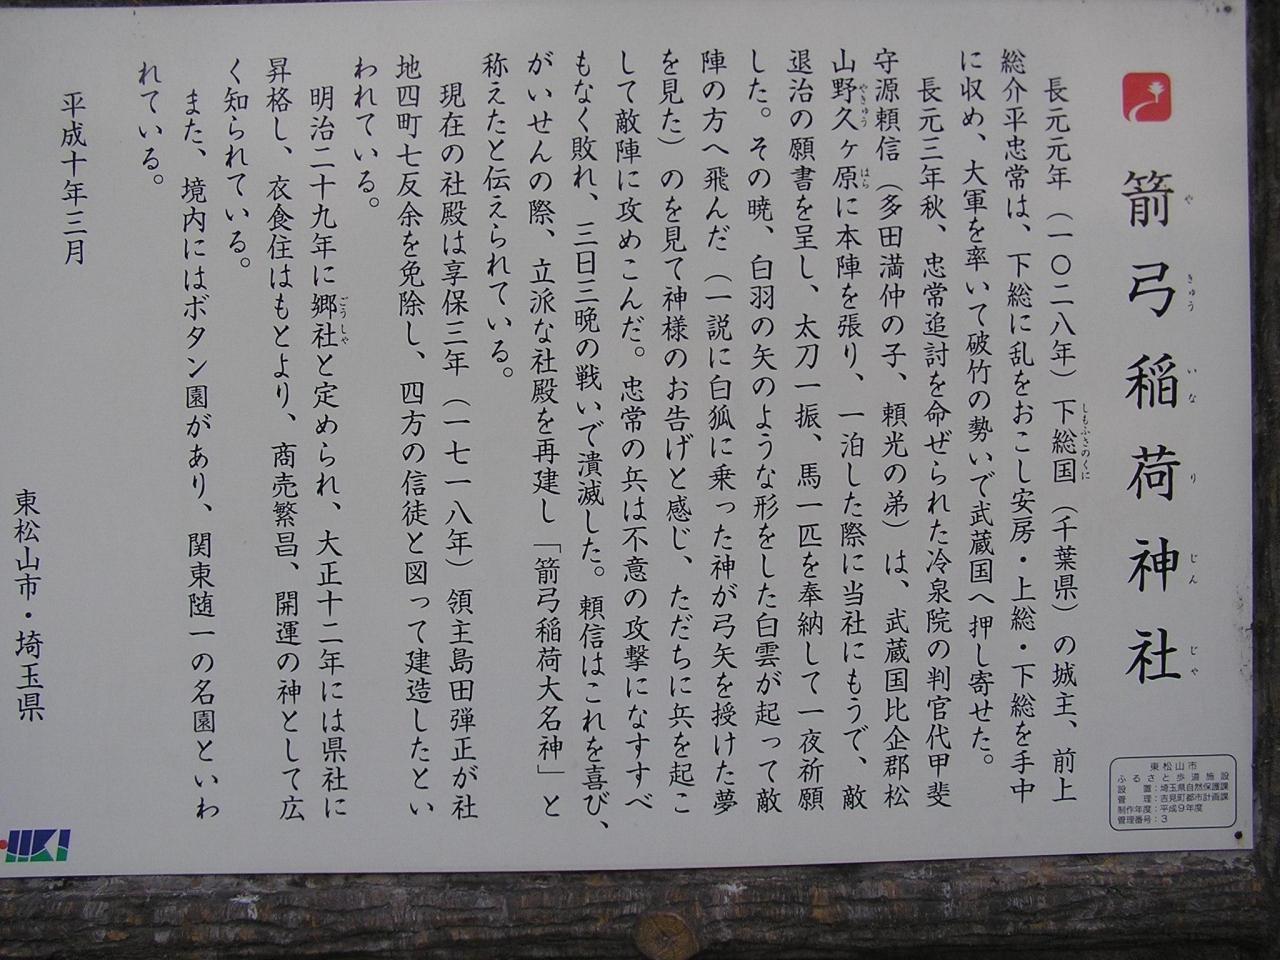 箭弓稲荷神社
や きゅう いな り じん じゃ
長元元年（一〇二八年）下総国（千葉県）の城主、前上
しもふさのくに
総介平忠常は、下総に乱をおこし安房・上総・下総を手中
に収め、大軍を率いて破竹の勢いで武蔵国へ押し寄せた。
長元三年秋、忠常追討を命ぜられた冷泉院の判官代甲斐
守源頼信（多田満仲の子、頼光の弟）は、武蔵国比企郡松
山野久ヶ原に本陣を張り、一泊した際に当社にもうで、敵
やきゅう はら
退治の願書を呈し、太刀一振、馬一匹を奉納して一夜祈願
した。その暁、白羽の矢のような形をした白雲が起って敵
陣の方へ飛んだ（一説に白狐に乗った神が弓矢を授けた夢
を見た）のを見て神様のお告げと感じ、ただちに兵を起こ
して敵陣に攻めこんだ。忠常の兵は不意の攻撃になすすべ
もなく敗れ、三日三晩の戦いで潰滅した。頼信はこれを喜び、
がいせんの際、立派な社殿を再建し「箭弓稲荷大名神」と
称えたと伝えられている。
現在の社殿は享保三年（一七一八年）領主島田弾正が社
地四町七反余を免除し、四方の信徒と図って建造したとい
われている。
明治二十九年に郷社と定められ、大正十二年には県社に
ごうしゃ
昇格し、衣食住はもとより、商売繁昌、開運の神として広
く知られている。
また、境内にはボタン園があり、関東随一の名園といわ
れている。
平成十年三月
東松山市・埼玉県
東松山市
ふるさと歩道施設
設置：埼玉県自然保護課
管理：吉見町都市計画課
制作年度：平成9年度
管理番号：3